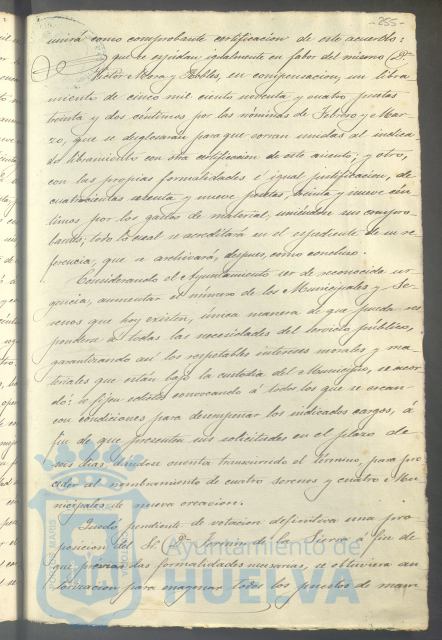 -255-
unirá como comprobante certificacion de este acuerdo:
que se expidan igualmente en fabor del mismo Dn
Victor Mora y Robles, en compensacion, un libra
miento de cinco mil ciento noventa y cuatro pesetas
treinta y dos céntimos por las nominas de Febrero y Mar-
zo, que se desglosarán para que corran unidas al indica
do libramiento con otra certificacion de este asiento; y otro,
con las propias formalidades é igual justificacion, de
cuatrocientas setenta y nueve pesetas, treinta y nueve cén-
timos por los gastos de material, uniendose sus compro-
bantes; todo lo cual se acreditará en el espediente de su re-
ferencia, que se archivará, despues, como concluso.
Considerando el Ayuntamiento ser de reconocida ur-
gencia, aumentar el número de los Municipales y Se-
renos que hoy existen, única manera de que pueda res
ponderse á todas las necesidades del servicio público,
garantizando asi los respetables intereses morales y ma-
teriales que están bajo la custodia del Municipio, se acor
dó: se fijen edictos convocando á todos los que se encuen-
tren con condiciones para desempeñar los indicados cargos, á
fin de que presenten sus solicitudes en el plazo de
seis dias, dandose cuenta transcurrido el término, para pro
ceder al nombramiento de cuatro serenos y cuatro Mu-
nicipales de nueva creacion.
Quedó pendiente de votacion definitiva una pro
posicion del Sr. Dn Fermin de la Sierra á fin de
que, previas las formalidades necesarias, se obtuviera au
torizacion para enagenar todos los puestos de
Ayuntamiento de
HUELVA